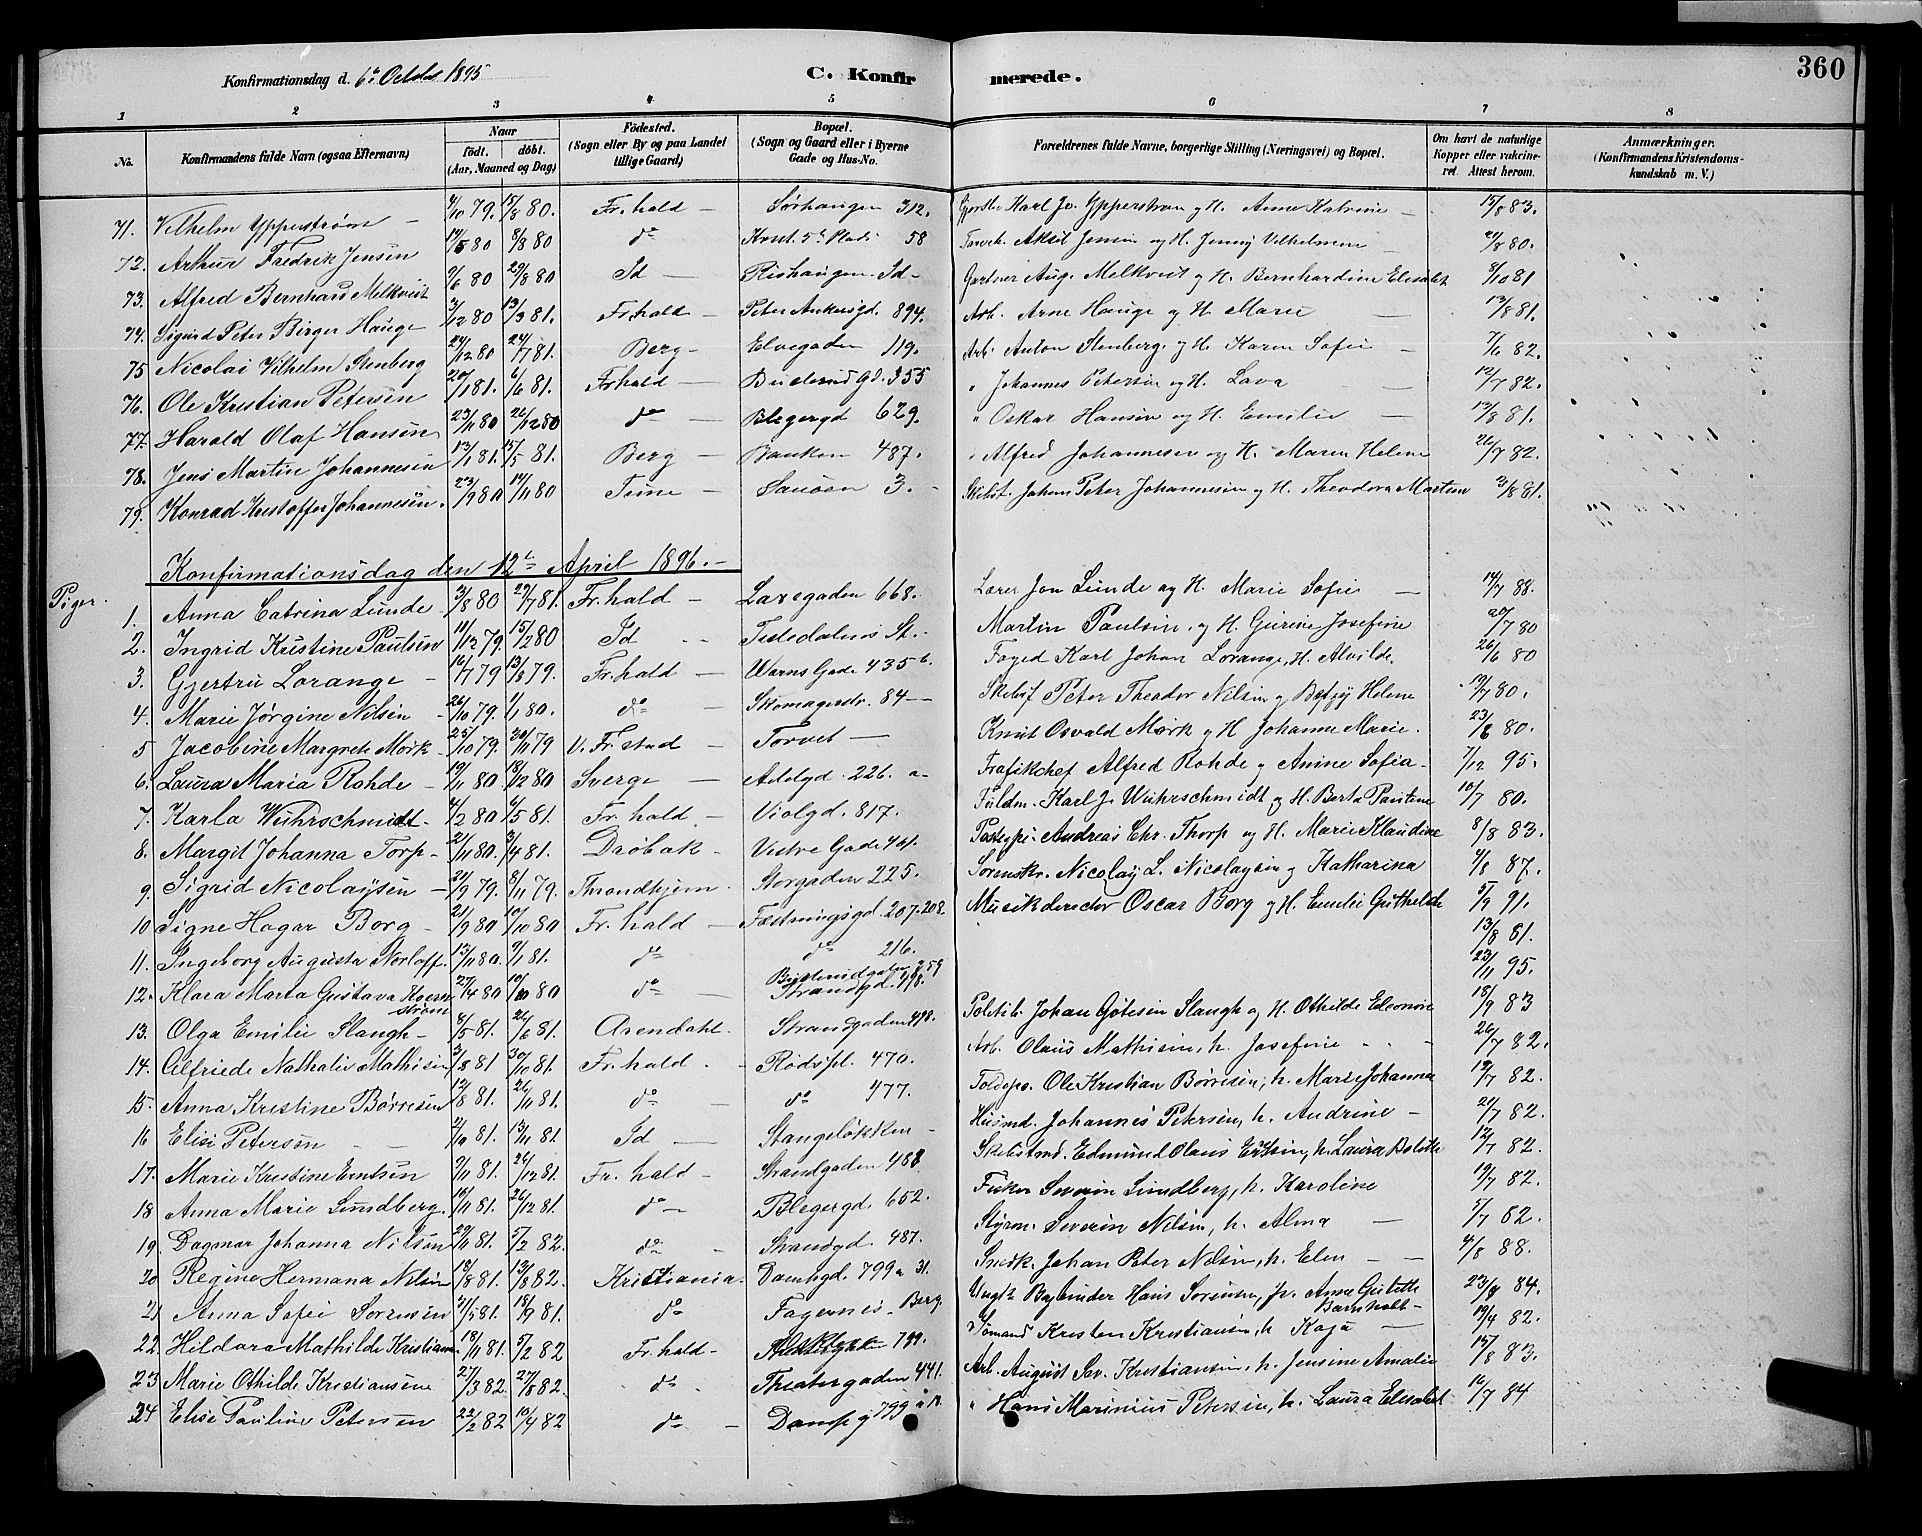 Konfirmationsdag d. 6te October 1895 C. Konfirmerede. 360
1 2 3 4 5 6 7 8
No. Konfirmandens fulde Navn (ogsaa Efternavn) Naar födt. döbt. (Aar, Maaned og Dag) Födested. (Sogn eller By og paa Landet tillige Gaard) Bopæl. (Sogn og Gaard eller i Byerne Gade og Hus-No. Forældrenes fulde Navne, borgerlige Stilling (Næringsvei) og Bopæl. Om havt de naturlige Kopper eller vakcineret. Attest herom. Anmærkninger. (Konfirmandens Kristendomskundskab m. V.)
71. Vilhelm Ypperstrøm 4/10 79. 15/8 80. Fr.hald Sørhaugen 312. Karl Jo. Ypperstrøm og H. Anne Katrine 15/8 83.
72. Arthur Fredrik Jensen 19/5 80 8/8 80 do 58 Aksil Jensen og H. Jenny Vilhelmine 21/8 80.
73. Alfred Bernhard Melkveit 9/6 80 29/8 80 Id Rishaugen Id Gartner Aug. Melkveit og H. Bernhardine Elisabet 8/10 81
74. Sigurd Peter Birger Hauge 3/12 80 13/3 81. Fr.hald Peter Ankersgd. 894. Arb. Arne Hauge og H. Marie 13/8 81.
75 Nicolai Vilhelm Stenberg 24/12 80 24/7 81. Berg Elvegaden 119. Arb. Anton Stenberg og H. Karen Sofie 7/6 82.
76. Ole Kristian Petersen 20/1 81. 6/6 81. Fr.hald Buslrud Gd. 355 " Johannes Petersen og H. Lava 12/7 82.
77. Harald Olaf Hansen 23/11 80 26/12 80 do Blegergd 629. " Oskar Hansen og H. Emilie 13/8 81.
78. Jens Martin Johannesen 13/1 81. 15/5 81. Berg Banken 487. " Alfred Johannesen og H. Maren Helene 26/7 82.
79. Konrad Kristoffer Johannesen 23/9 80 14/11 80 Tune Sauøen 3. Skibst. Johan Peter Johannesen og H. Theodora Martin 3/8 81.
Konfirmationsdag den 12te April 1896.
Piger.
1. Anna Catrina Lunde 3/8 80 27/7 81. Fr.hald Laregaden 668. Lærer Jon Lunde og H. Marie Sofie 14/7 88.
2. Ingrid Kristine Paulsen 11/12 79. 15/2 80 Id Tistedalens St. Martin Paulsen og H. Gurine Josefine 20/7 80
3. Gjertru Lorange 16/7 79 13/8 79. Fr.hald Warns Gade 435 b. Foged Karl Johan Lorange, H. Alvilde. 26/6 80
4. Marie Jørgine Nilsen 26/10 79. 1/1 80. do Skomagerstr. 84 Skibsf Peter Theodor Nilsen og Betzy Helene 19/7 80.
5 Jacobine Margrete Mørk 25/10 79. 30/11 79 V. Fr.stad Torvet Knut Osvald Mørk og H Johanne Marie. 23/8 80.
6. Laura Maria Rohde 19/11 80. 18/12 80 Sverge Adelgd. 226. a Trafikchef Alfred Rohde og Anine Sofia 7/12 95.
7. Karla Wührschmidt 4/2 80 6/5 81. Fr. hald Violgd. 817. Fuldm. Karl J. Wührschmidt og H. Berta Pauline 10/7 80.
8. Margit Johanna Torp 21/11 80. 3/4 81. Drøbak Vestre Gade 461. Andreas Chr. Thorp og H. Marie Klaudine 8/8 83.
9. Sigrid Nicolaysen 21/9 79. 8/11 79. Throndhjem Storgaden 225. Sorenskr. Nicolay L. Nicolaysen og Katharina 4/8 87.
10 Signe Hagar Borg 21/9 80 10/10 80 Fr. hald Fæstningsgd. 207. 208. Musikdirector Oscar Borg og H. Emilie Guthilde 5/9 91.
11. Ingeborg Augusta Norloff. 13/11 80. 9/1 81. do do 216. 13/8 81.
12. Klara Marta Gustava strøm 27/4 80 10/10 80 do Strandgd. 498. 23/11 95.
13. Olga Emilie Slaugh 8/5 81. 26/6 81. Arendahl. Strandgaden 498. Politib. Johan Götesen Slaugh og H. Othilde Eleonore 18/9 83
14. Alfriede Nathalie Mathisen 3/8 81 30/10 81. Fr. hald Rødspl. 470. Arb. Olaus Mathisen, h. Josefine 26/7 82.
15. Anna Kristine Børresen 12/8 81. 26/11 81. do do 477. Toldop. Ole Kristian Børresen, h. Marie Johanna 19/7 82.
16 Elise Petersen 2/10 81. 13/11 81. Id Stangeløkken Husmd. Johannes Petersen, h. Andrine 21/7 82.
17. Marie Kristine Emtsen 9/11 81. 26/12 81. Fr. hald Strandgaden 488 Skibstmd. Edmund Olaus, h. Laura Bolette 12/7 82.
18 Anna Marie Lundberg. 16/11 81. 26/12 81. do Blegergd. 652. Fisker Severin Lundberg, h. Karoline 19/7 82.
19. Dagmar Johanna Nilsen 29/11 81. 5/2 82. do Strandgd. 487. Styrm. Severin Nilsen, h. Alma 5/7 82.
20 Regine Hermana Nilsen 18/8 81. 13/8 82. Kristiania. Dambgd. 799 a 31. Snedk. Johan Peter Nilsen, h. Elen 4/8 88.
21. Anna Sofie Sørensen 21/5 81. 18/9 81. do Fagernes Berg. Ungk. Bogbinder Hans Sørensen, Jr. Anne Gulette Barnholt 23/9 84.
22. Hildora Mathilde Kristiansen 18/11 81. 5/2 82 Fr. hald 799. Sømand Kristen Kristiansen, h. Kaja 19/4 82.
23 Marie Othilde Kristiansene 27/3 82. 27/8 82. do Theatergaden 441. Arb. August Sev. Kristiansen, h. Jensine Amalie 15/8 83.
24 Elise Pauline Petersen 22/2 82 10/4 82 do Damp g 799 a 12. " Hans Marinius Petersen, h. Laura Elisabet 16/7 84